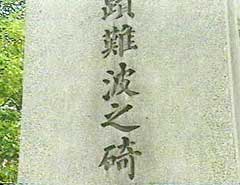 顕難波之碕